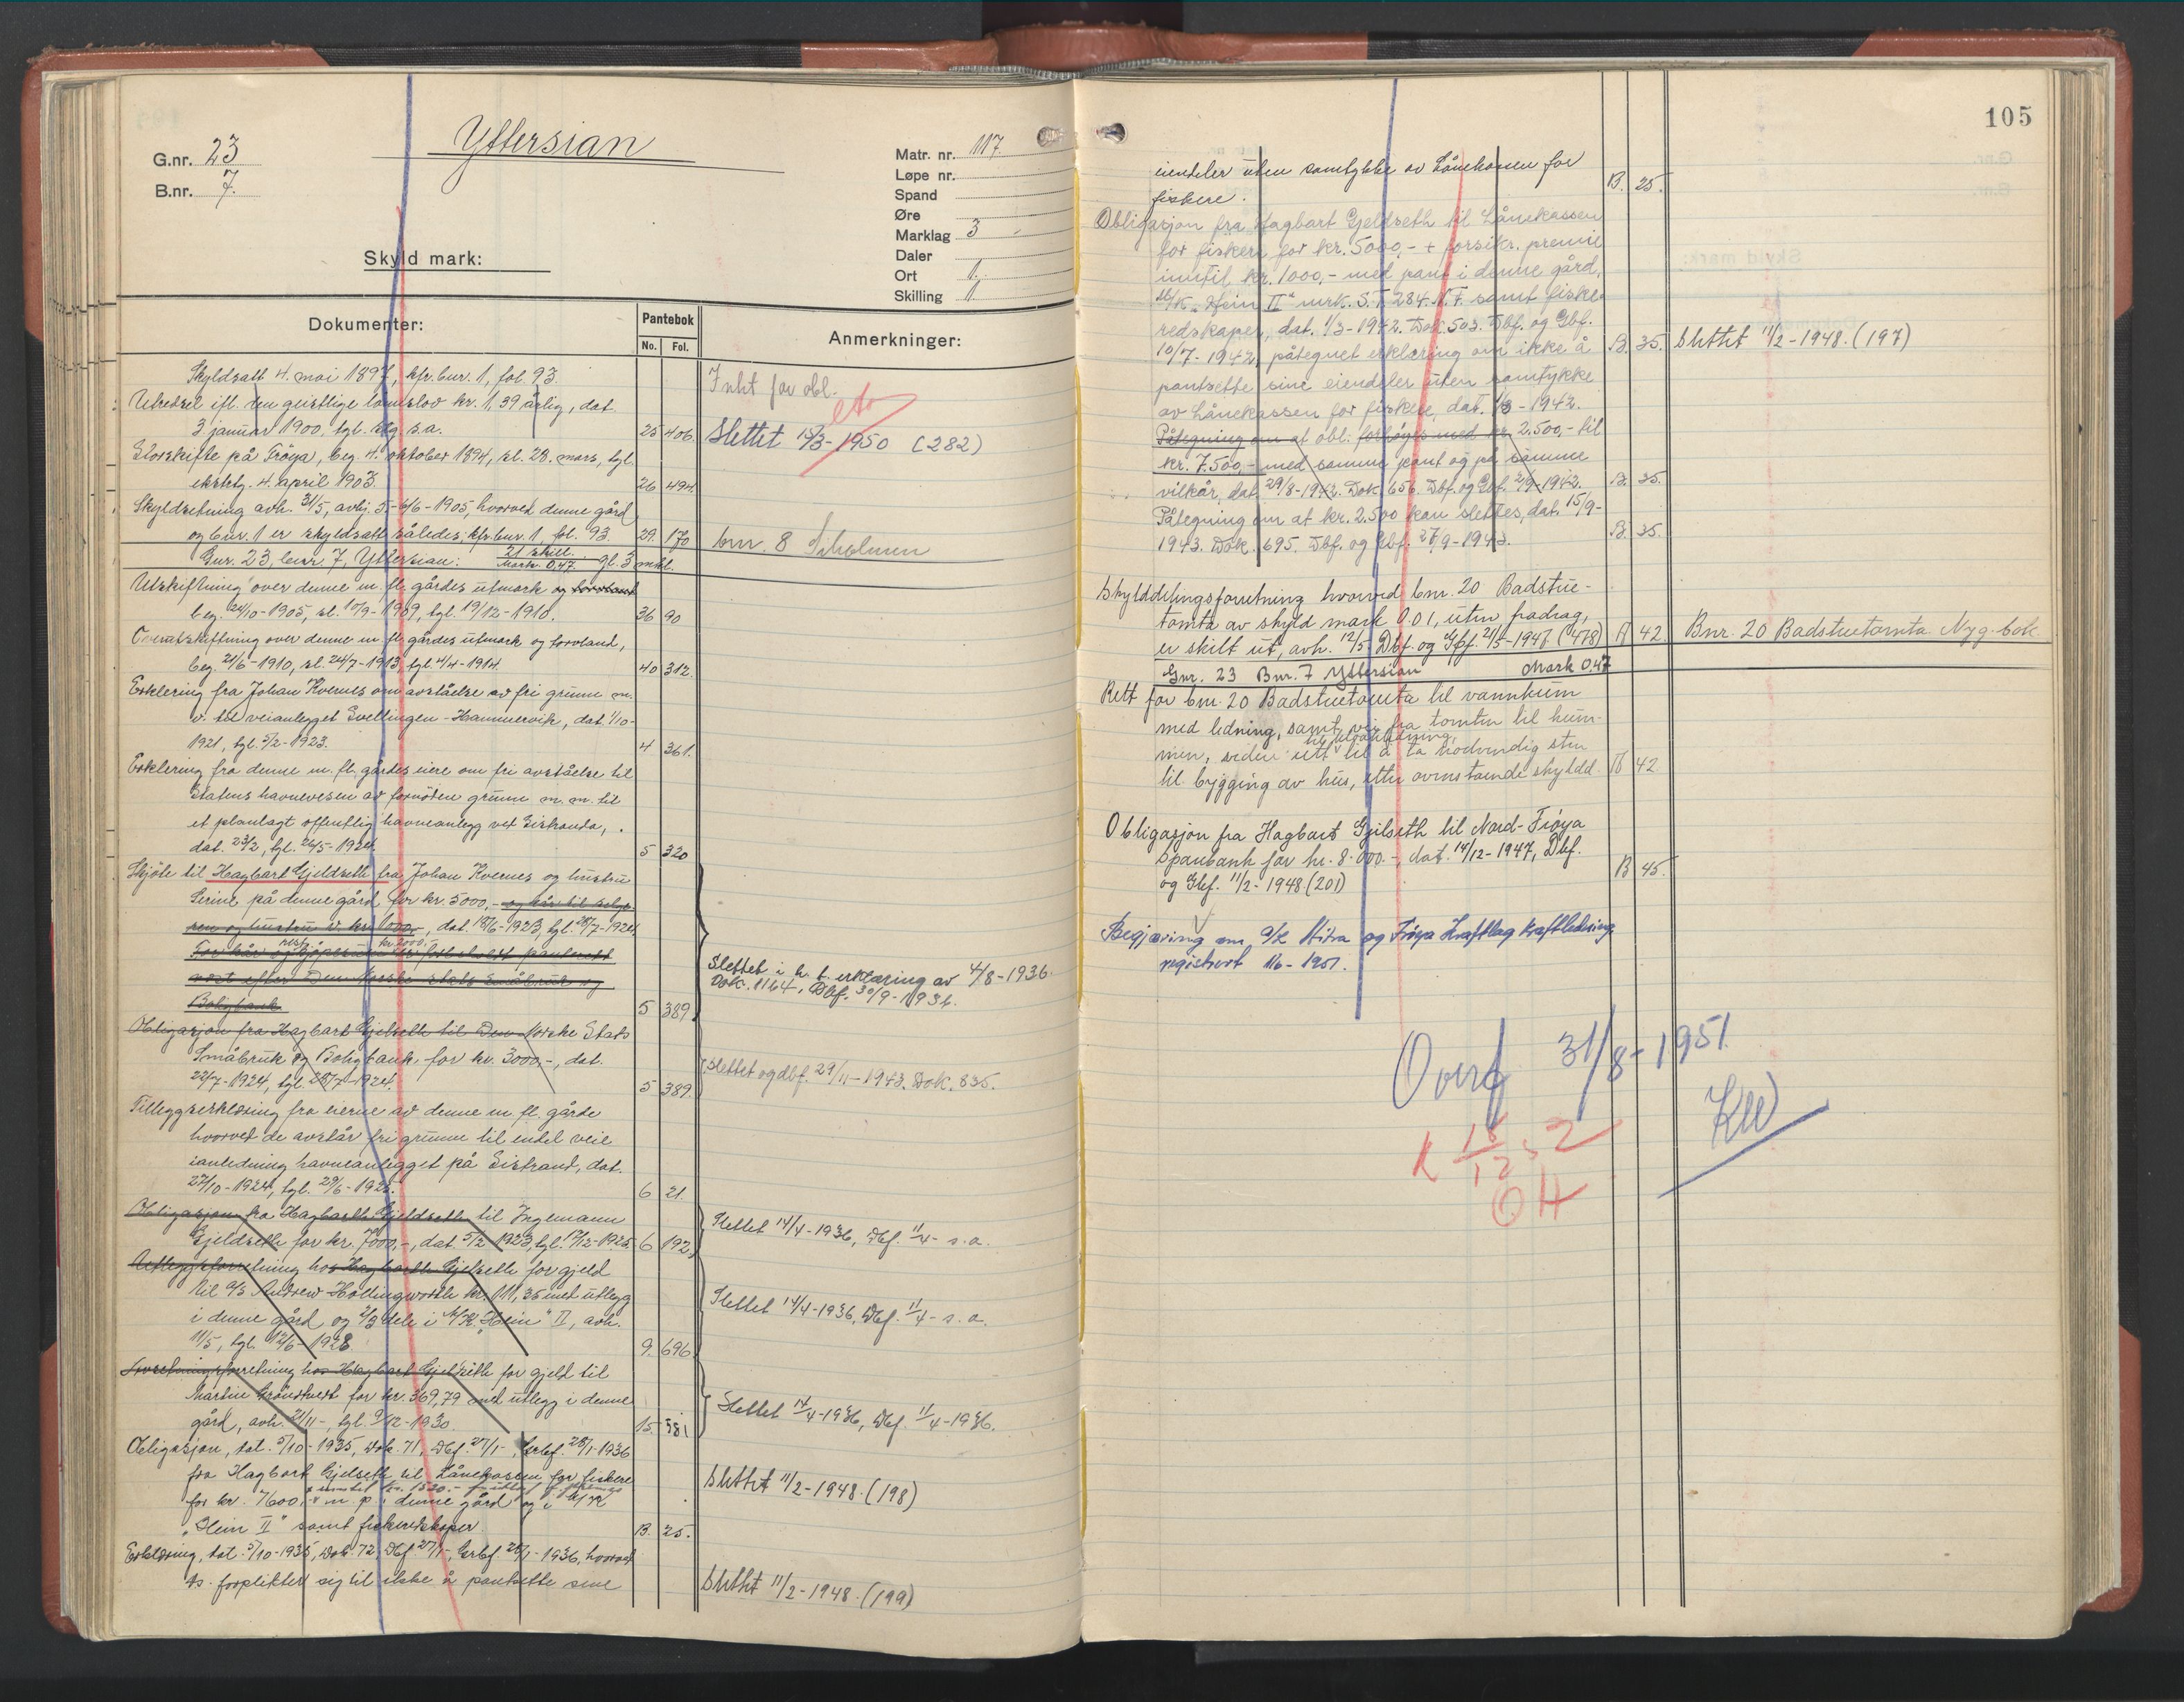 105
G.nr. 23
B.nr. 7.
Yttersian
Matr. nr. 117.
Løpe nr.
Spand
Øre
Marklag 3
Daler
Ort 1.
Skilling 11
Skyld mark:
Dokumenter:
Pantebok
No. Fol.
Anmerkninger:
Skyldsatt 4. mai 1897, kfr. bnr. 1, fol. 93.
Utredsel ifl. den geistlige lov kr. 11,39 årlig, dat.
3 januar 1900, tgl. s.a. 25 406.
Intet for obl.
Slettet 15/3-1950 (282)
Storskifte på Frøya, beg. 4. oktober 1894, sl. 28. mars, tgl.
4. april 1903. 26 494.
Skyldsetning avh. 31/5, avhj. 5-6/6-1905, hvorved denne gård
og bnr. 1 er skyldsatt således: kfr. bnr. 1, fol. 93. 29. 170
bnr. 8 Siholmen
Gnr. 23, bnr 7, Yttersian: 21 skill. Mark 0.47 gl. 3 mkl.
Utskiftning over denne m. fl. gårdes utmark og torvland
beg. 24/10-1905, sl. 10/9-1909, tgl. 19/12-1910. 36 90
Overutskiftning over denne m. fl. gårdes utmark og torvland,
beg. 21/6-1910, sl. 24/7-1913, tgl. 4/4-1914. 40 312.
Erklering fra Johan Kvernes om avståelse av fri grunn m.
v. til veianlegget Svellingen-Hammervik, dat. 1/10-
1921, tgl. 5/2-1923. 4 361.
Erklering fra denne m. fl. gårdes eiere om fri avståelse til
Statens havnevesen av fornøden grunn m. m. til
et planlagt offentlig havneanlegg ved Sistranda,
dat. 23/2, tgl. 26/5-1924. 5 320
Skjøte til Hagbart Gjeldseth fra Johan Kvernes og hustru
Serine på denne gård for kr. 5000,- og kår til selge-
ren og hustru v. kr. 1000,-, dat. 19/6-1923, tgl. 28/7-1924.
For kår og rest kjøpesum kr. 2000,- forbeholdt panterett
næst efter Den Norske Stats Småbruk og
Boligbank 5 389
Slettet i h. t. erklæring av 4/8-1936.
Dok. 1164, Dbf. 30/9-1936.
Obligasjon fra Hagbart Gjelseth til Den Norske Stats
Småbruk og Boligbank for kr. 3000,-, dat.
22/7-1924, tgl. 28/7-1924. 5 389.
Slettet og dbf. 29/11-1943. Dok. 835.
Tilleggserklæring fra eierne av denne m. fl. gårde
hvorved de avstår fri grunn til endel veie
ianledning havneanlegget på Sistrand, dat.
27/10-1924, tgl. 29/6-1925. 6 21.
Obligasjon fra Hagbarth Gjeldseth til Ingemann
Gjeldseth for kr. 7000,-, dat. 5/2 1923, tgl. 17/12-1925. 6 192
Slettet 14/4-1936, Dbf. 11/4- s. a.
Utleggsforretning hos Hagbarth Gjelseth for gjeld
til A/S Andrew Hollingworth kr. 111,35 med utlegg
i denne gård og 2/3 dele i M/K. "Hein" II, avh.
11/5, tgl. 12/6-1928. 9. 696
Slettet 14/4-1936, Dbf. 11/4- s. a.
forretning hos Hagbart Gjelseth for gjeld til
Martin for kr. 369,79 med utlegg i denne
gård, avh. 21/11-, tgl. 9/12-1930. 15. 581
Slettet 14/4-1936, Dbf. 11/4-1936.
Obligasjon, dat. 5/10-1935, Dok. 71, Dbf. 27/1-, Grbf. 28/1-1936
fra Hagbart Gjelseth til Lånekassen for fiskere
for kr. 7600,- m. p. i denne gård og i M/K
"Hein II" samt fiskeredskaper. B. 25.
Slettet 11/2-1948. (198)
Erklæring, dat. 5/10-1935, Dok. 72, Dbf. 27/1-, Grbf. 28/1-1936, hvorved
ds. forplikter sig til ikke å pantsette sine
Slettet 11/2-1948. (199)
eiendeler uten samtykke av Lånekassen for
fiskere. B. 25.
Obligasjon fra Hagbart Gjeldseth til Lånekassen
for fiskere for kr. 5000,- + forsikr. premie
inntil kr. 1000,- med pant i denne gård,
M/K. "Hein II" mrk. S.T. 284. N.F. samt fiske-
redskaper, dat. 1/3-1942. Dok. 503. Dbf. og Gbf.
10/7-1942, påtegnet erklæring om ikke å B. 35.
pantsette sine eiendeler uten samtykke
av Lånekassen for fiskere, dat. 1/3-1942.
Slettet 11/2-1948. (197)
Påtegning om at obl. forhøyes med kr. 2.500,- til
kr. 7.500,- med samme pant og på samme
vilkår, dat. 29/8-1942. Dok. 656. Dbf. og Gbf. 2/9-1942. B. 35.
Påtegning om at kr. 2.500 kan slettes, dat. 15/9-
1943. Dok. 695. Dbf. og Gbf. 27/9-1943. B. 35.
Skylddelingsforretning hvorved bnr. 20 Badstue-
tomta av skyld mark 0.01, uten fradrag,
er skilt ut, avh. 12/5. Dbf. og Gbf. 21/5-1947 (1478) B 42
Bnr. 20 Badstuetomta Ny g. bok
Gnr. 23 Bnr. 7 Yttersian Mark 0.47
Rett for bnr. 20 Badstuetomta til vannkum
med ledning, samt vei fra tomten til kum-
men, videre rett til å ta nødvendig sten
til bygging av hus, etter ovenstående skyldd. B 42
Obligasjon fra Hagbart Gjelseth til Nord-Frøya
Sparebank for kr. 8.000.-, dat. 14/12-1947, Dbf.
og Gbf. 11/2-1948. (201) B 45.
Begjæring om A/L Hitra og Frøya Kraftlag kraftledning
registrert 1/6-1951.
Overf 31/8-1951.
KW
OH